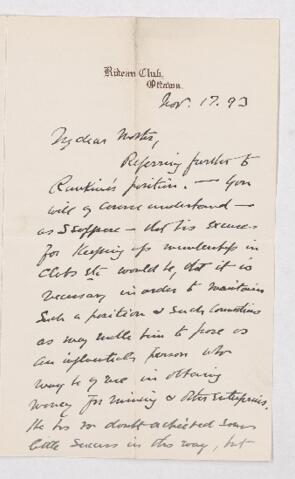 Rideau Club,
Ottawa.
Nov. 17. 93
My dear
Referring further to
Rankin's position. — You
will of course understand —
as I suppose — that his excuses
for keeping up membership in
Clubs etc would be, that it is
necessary in order to maintain
such a position & such connections
as may enable him to pose as
an influential person who
may be of use in obtaining
money for mining & other enterprises.
He has no doubt achieved some
little success in this way, but